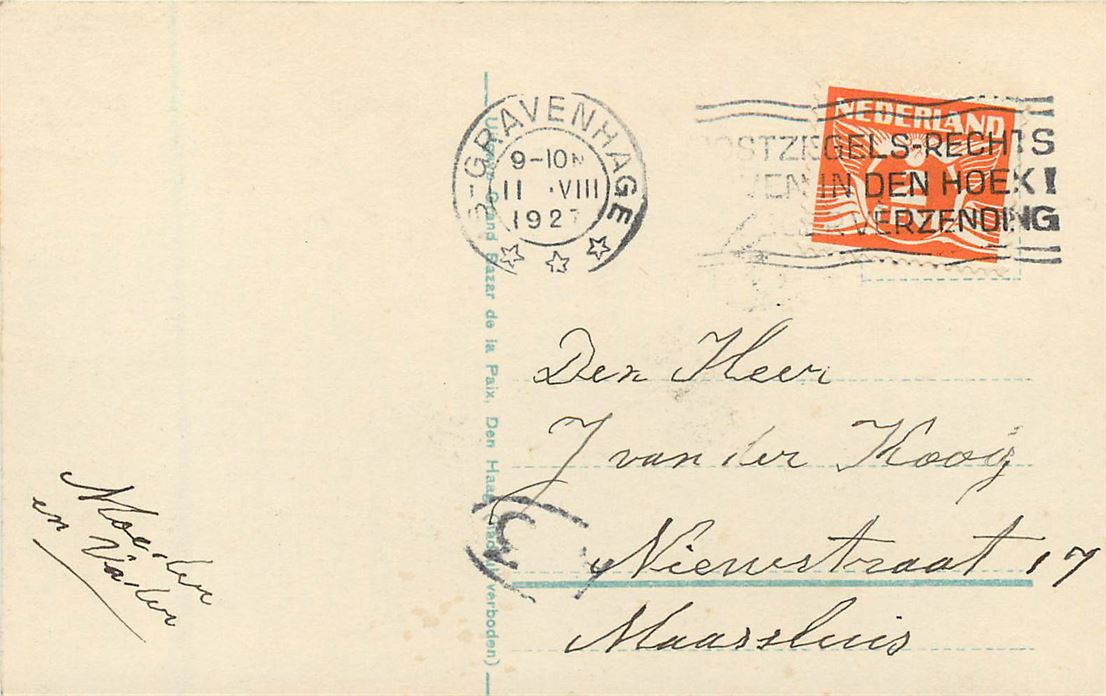 'S-GRAVENHAGE
9-10N
11 VIII
1927
NEDERLAND
POSTZEGELS-RECHTS
IN DEN HOEK!
VERZENDING
Grand Bazar de la Paix, Den Haag verboden)
Den Heer
J van der Kooij
Nieuwstraat 17
Maassluis
Moeder
en Vader
3